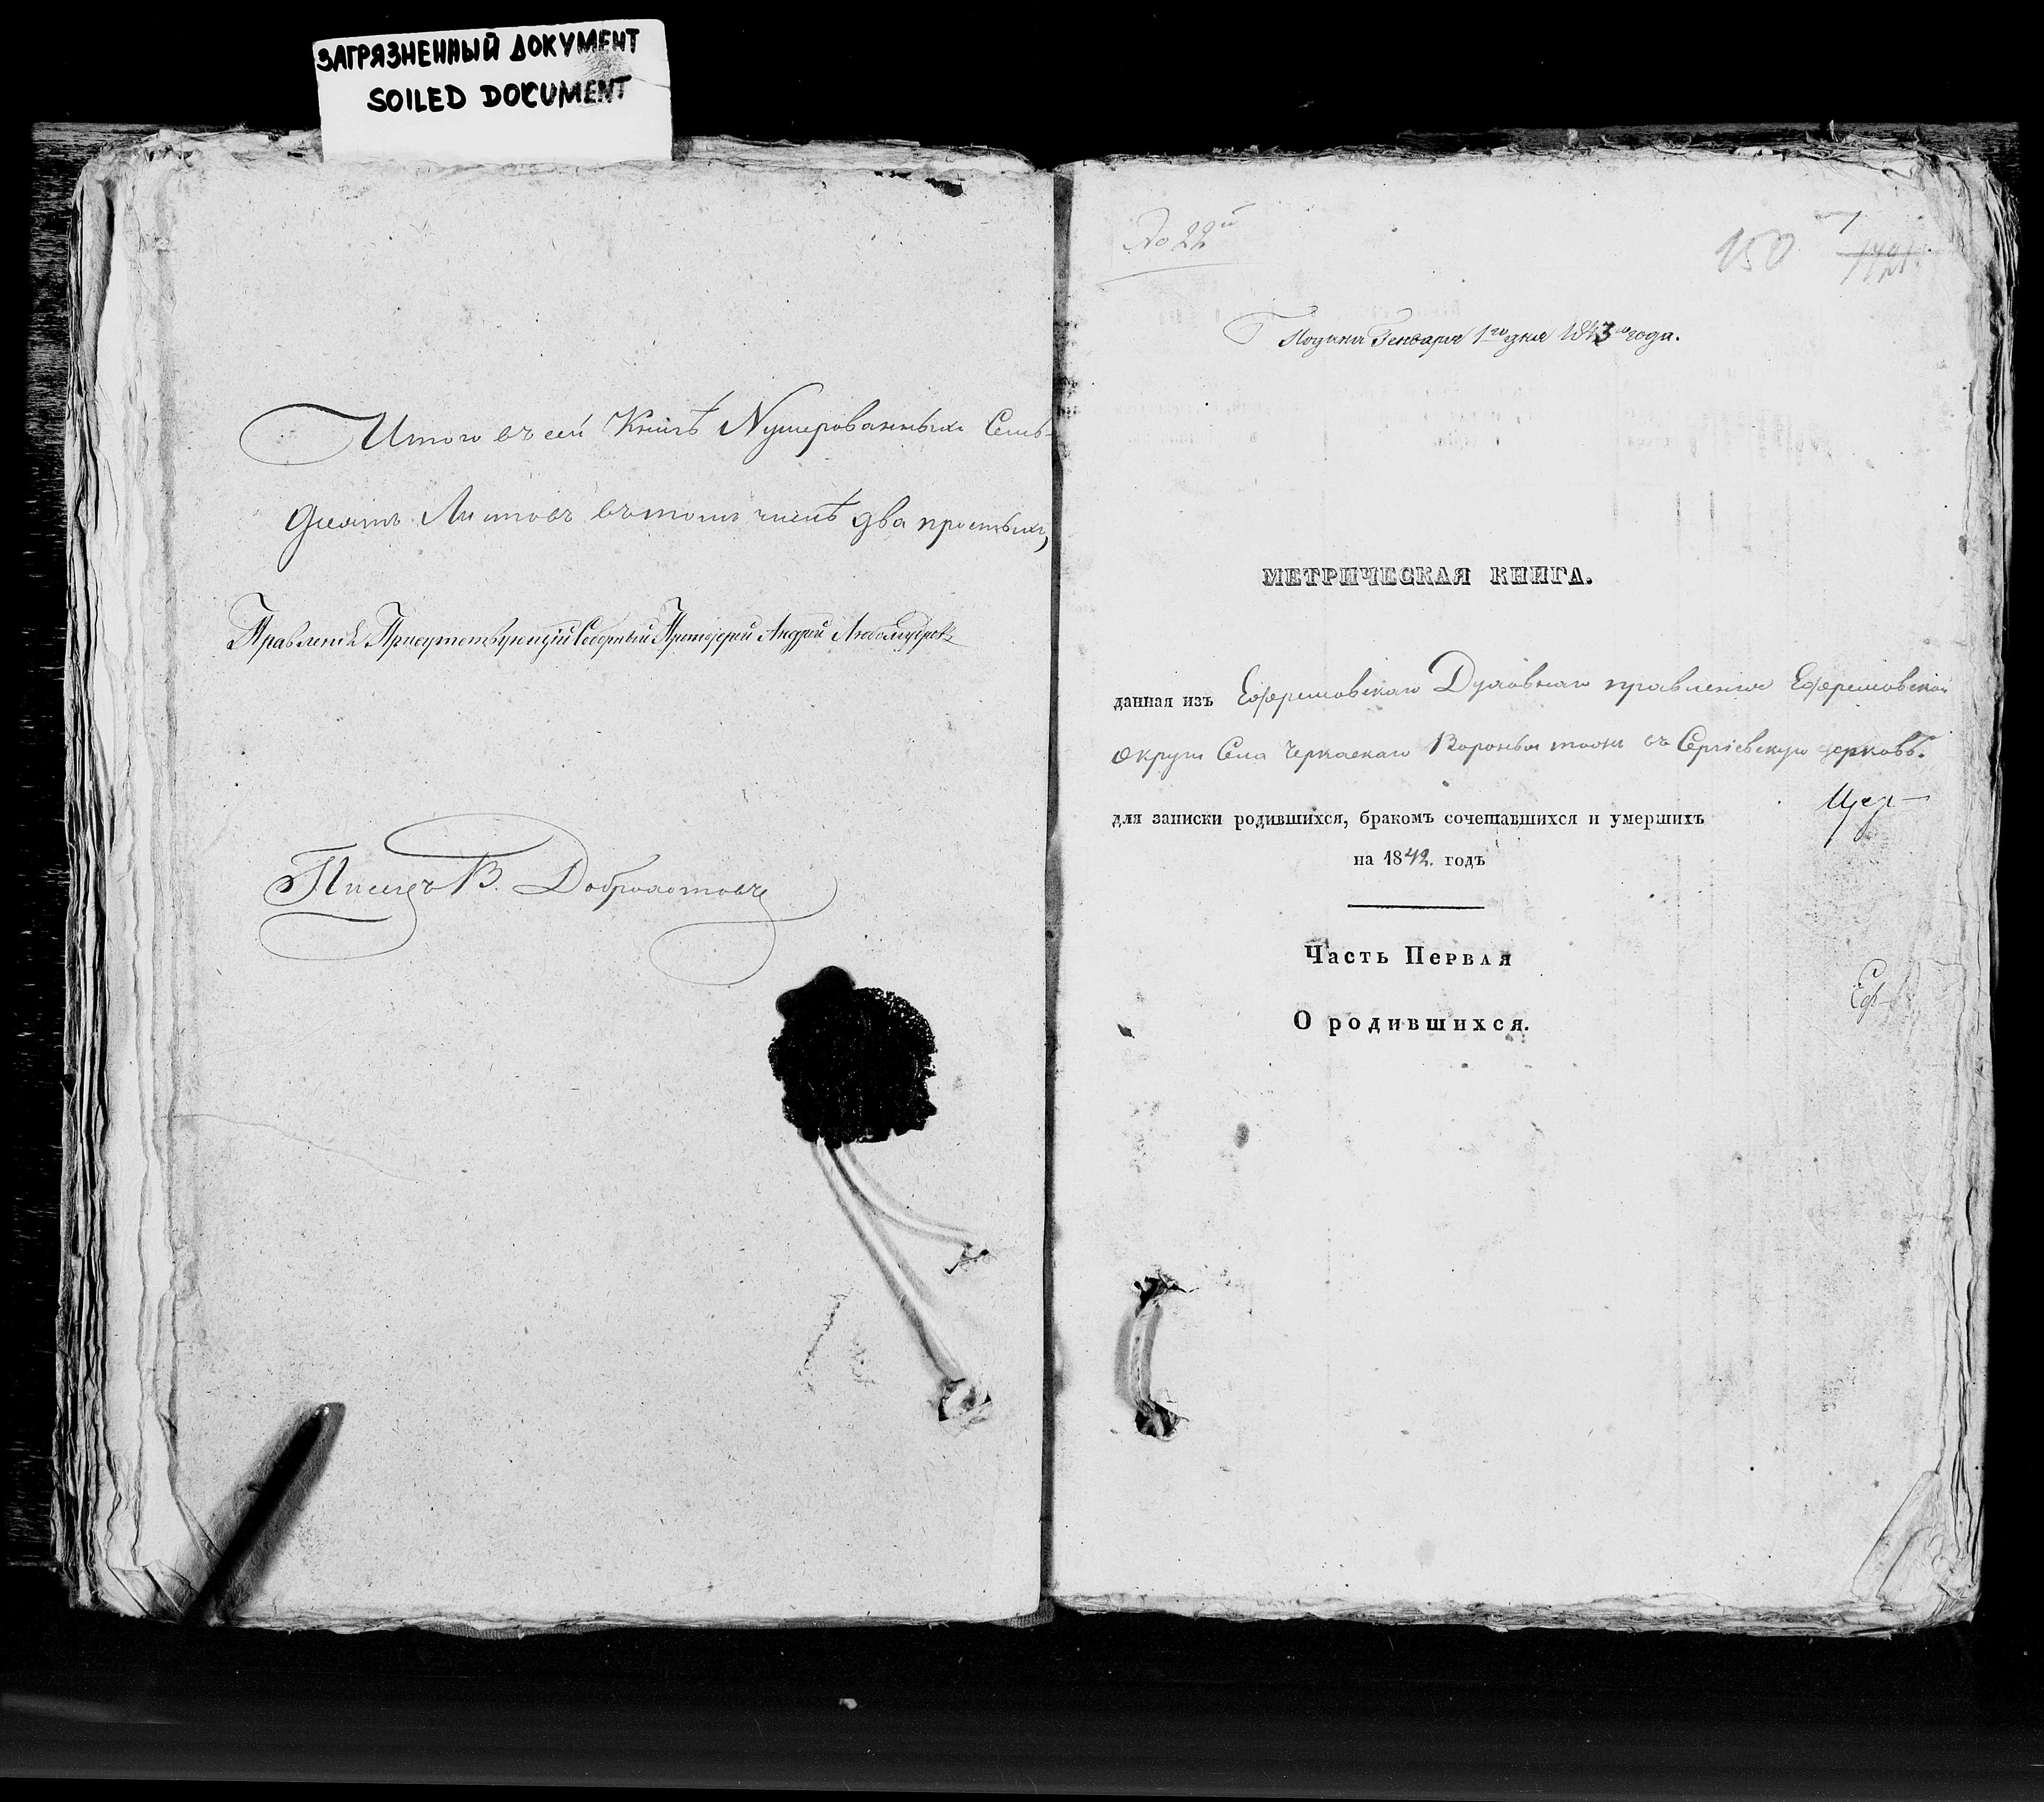 ЗАГРЯЗНЕННЫЙ ДОКУМЕНТ
SOILED DOCUMENT
Итого въ сей Книгѣ Нумерованныхъ Семь-
десятъ Листовъ въ томъ числѣ два простыхъ,
Правленія Присутствующій Соборный Протоіерей Андрей Любомудровъ
Писецъ В. Добролюбовъ
№ 22й
150
Генваря 1го дня 1843го года.
МЕТРИЧЕСКАЯ КНИГА.
данная изъ Ефремовскаго Духовнаго правленія Ефремовской
округи Села Черкаскаго въ Сергіевскую церковь.
для записки родившихся, бракомъ сочетавшихся и умершихъ
на 1842. годъ
Часть Первая
О родившихся.